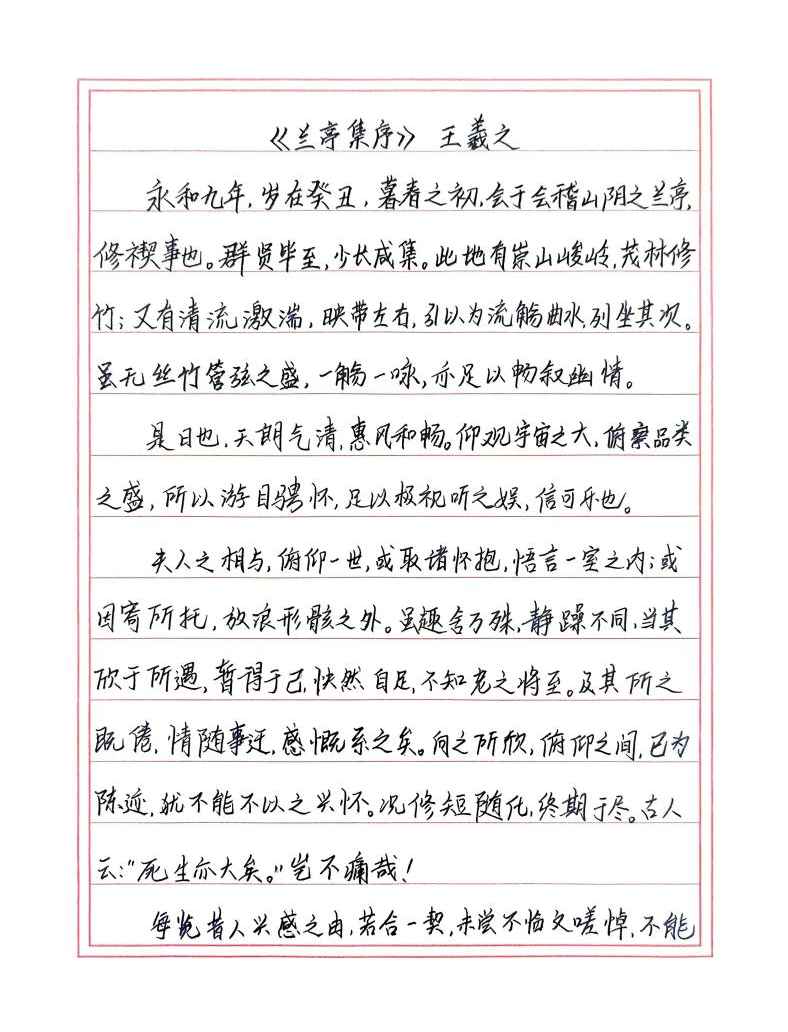 《兰亭集序》 王羲之
永和九年,岁在癸丑,暮春之初,会于会稽山阴之兰亭,
修禊事也。群贤毕至,少长咸集。此地有崇山峻岭,茂林修
竹;又有清流激湍,映带左右,引以为流觞曲水,列坐其次。
虽无丝竹管弦之盛,一觞一咏,亦足以畅叙幽情。
是日也,天朗气清,惠风和畅。仰观宇宙之大,俯察品类
之盛,所以游目骋怀,足以极视听之娱,信可乐也。
夫人之相与,俯仰一世,或取诸怀抱,悟言一室之内;或
因寄所托,放浪形骸之外。虽趣舍万殊,静躁不同,当其
欣于所遇,暂得于己,快然自足,不知老之将至。及其所之
既倦,情随事迁,感慨系之矣。向之所欣,俯仰之间,已为
陈迹,犹不能不以之兴怀。况修短随化,终期于尽。古人
云:"死生亦大矣。"岂不痛哉!
每览昔人兴感之由,若合一契,未尝不临文嗟悼,不能